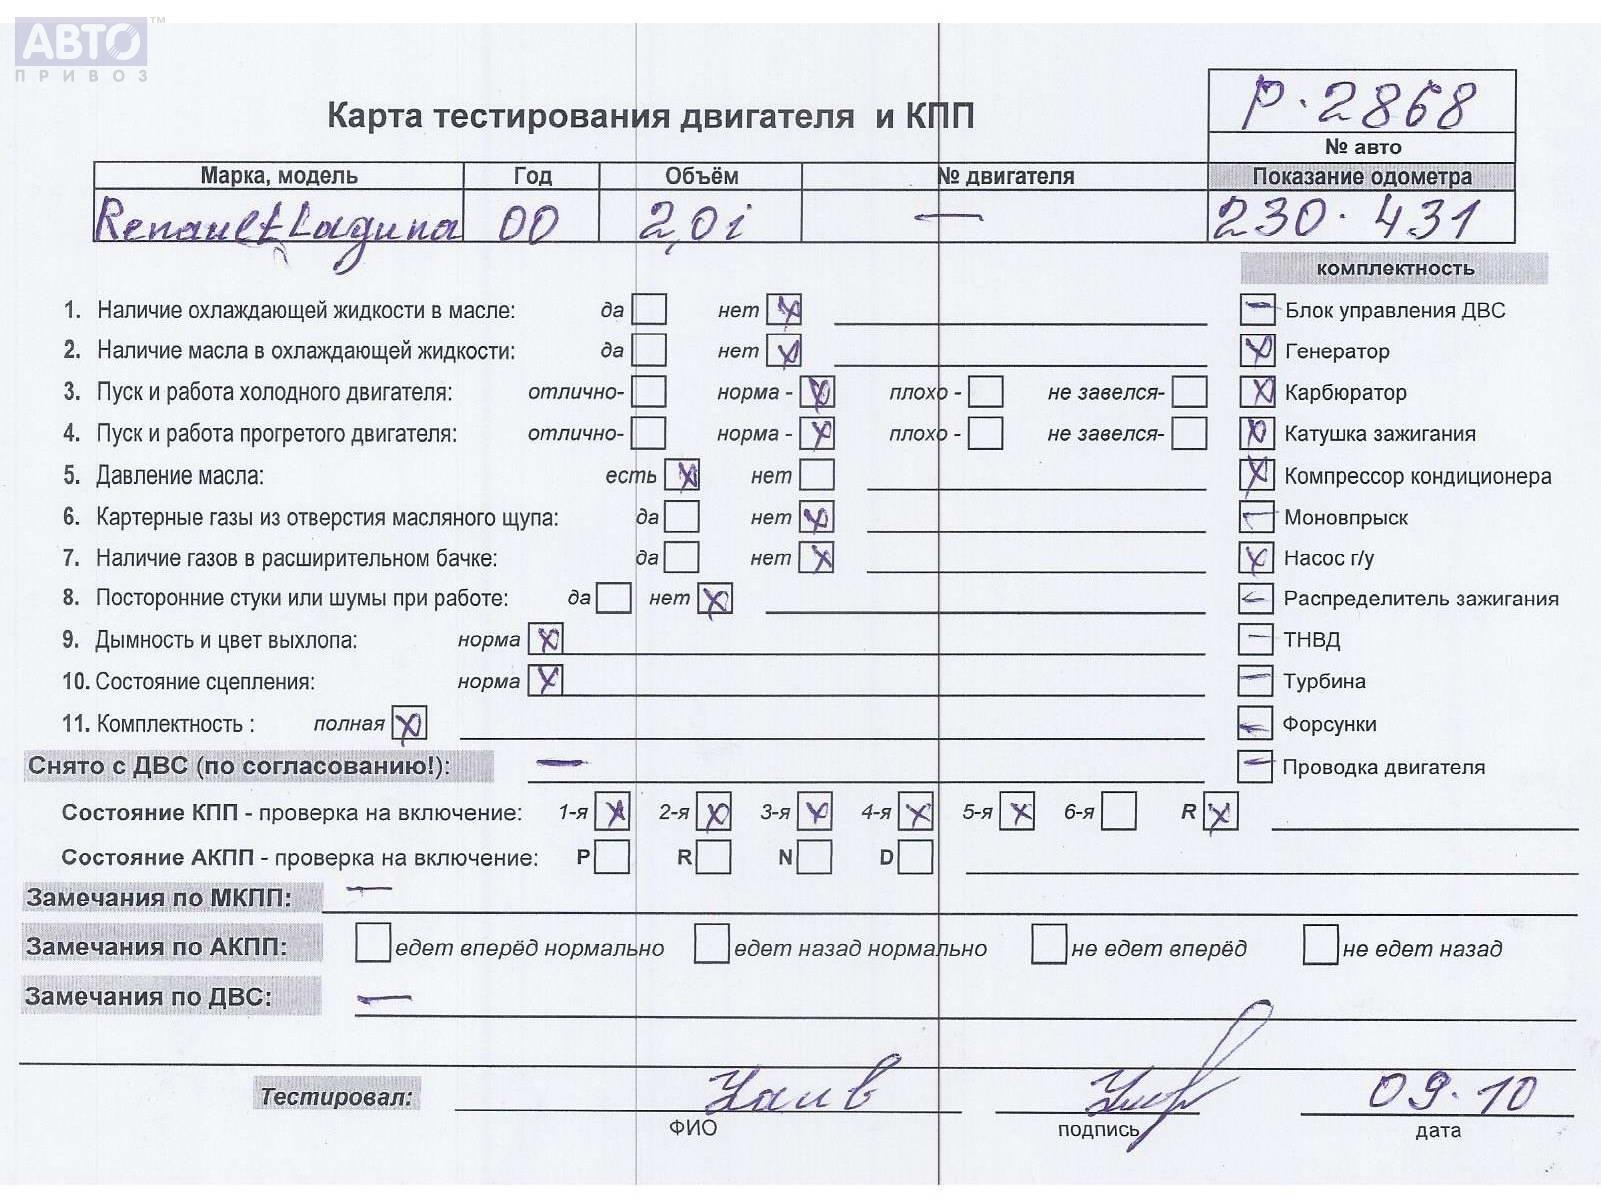 АВТО™
ПРИВОЗ
P·2868
Карта тестирования двигателя и КПП
№ авто
Марка, модель Год Объём № двигателя Показание одометра
Renault Laguna 00 2,0i — 230·431
комплектность
1. Наличие охлаждающей жидкости в масле: да нет X — Блок управления ДВС
2. Наличие масла в охлаждающей жидкости: да нет X X Генератор
3. Пуск и работа холодного двигателя: отлично- норма - X плохо - не завелся- X Карбюратор
4. Пуск и работа прогретого двигателя: отлично- норма - X плохо - не завелся- X Катушка зажигания
5. Давление масла: есть X нет X Компрессор кондиционера
6. Картерные газы из отверстия масляного щупа: да нет X — Моновпрыск
7. Наличие газов в расширительном бачке: да нет X X Насос г/у
8. Посторонние стуки или шумы при работе: да нет X — Распределитель зажигания
9. Дымность и цвет выхлопа: норма X — ТНВД
10. Состояние сцепления: норма X — Турбина
11. Комплектность : полная X — Форсунки
Снято с ДВС (по согласованию!): — — Проводка двигателя
Состояние КПП - проверка на включение: 1-я X 2-я X 3-я X 4-я X 5-я X 6-я R X
Состояние АКПП - проверка на включение: P R N D
Замечания по МКПП: —
Замечания по АКПП: едет вперёд нормально едет назад нормально не едет вперёд не едет назад
Замечания по ДВС: —
Тестировал: 09.10
ФИО подпись дата